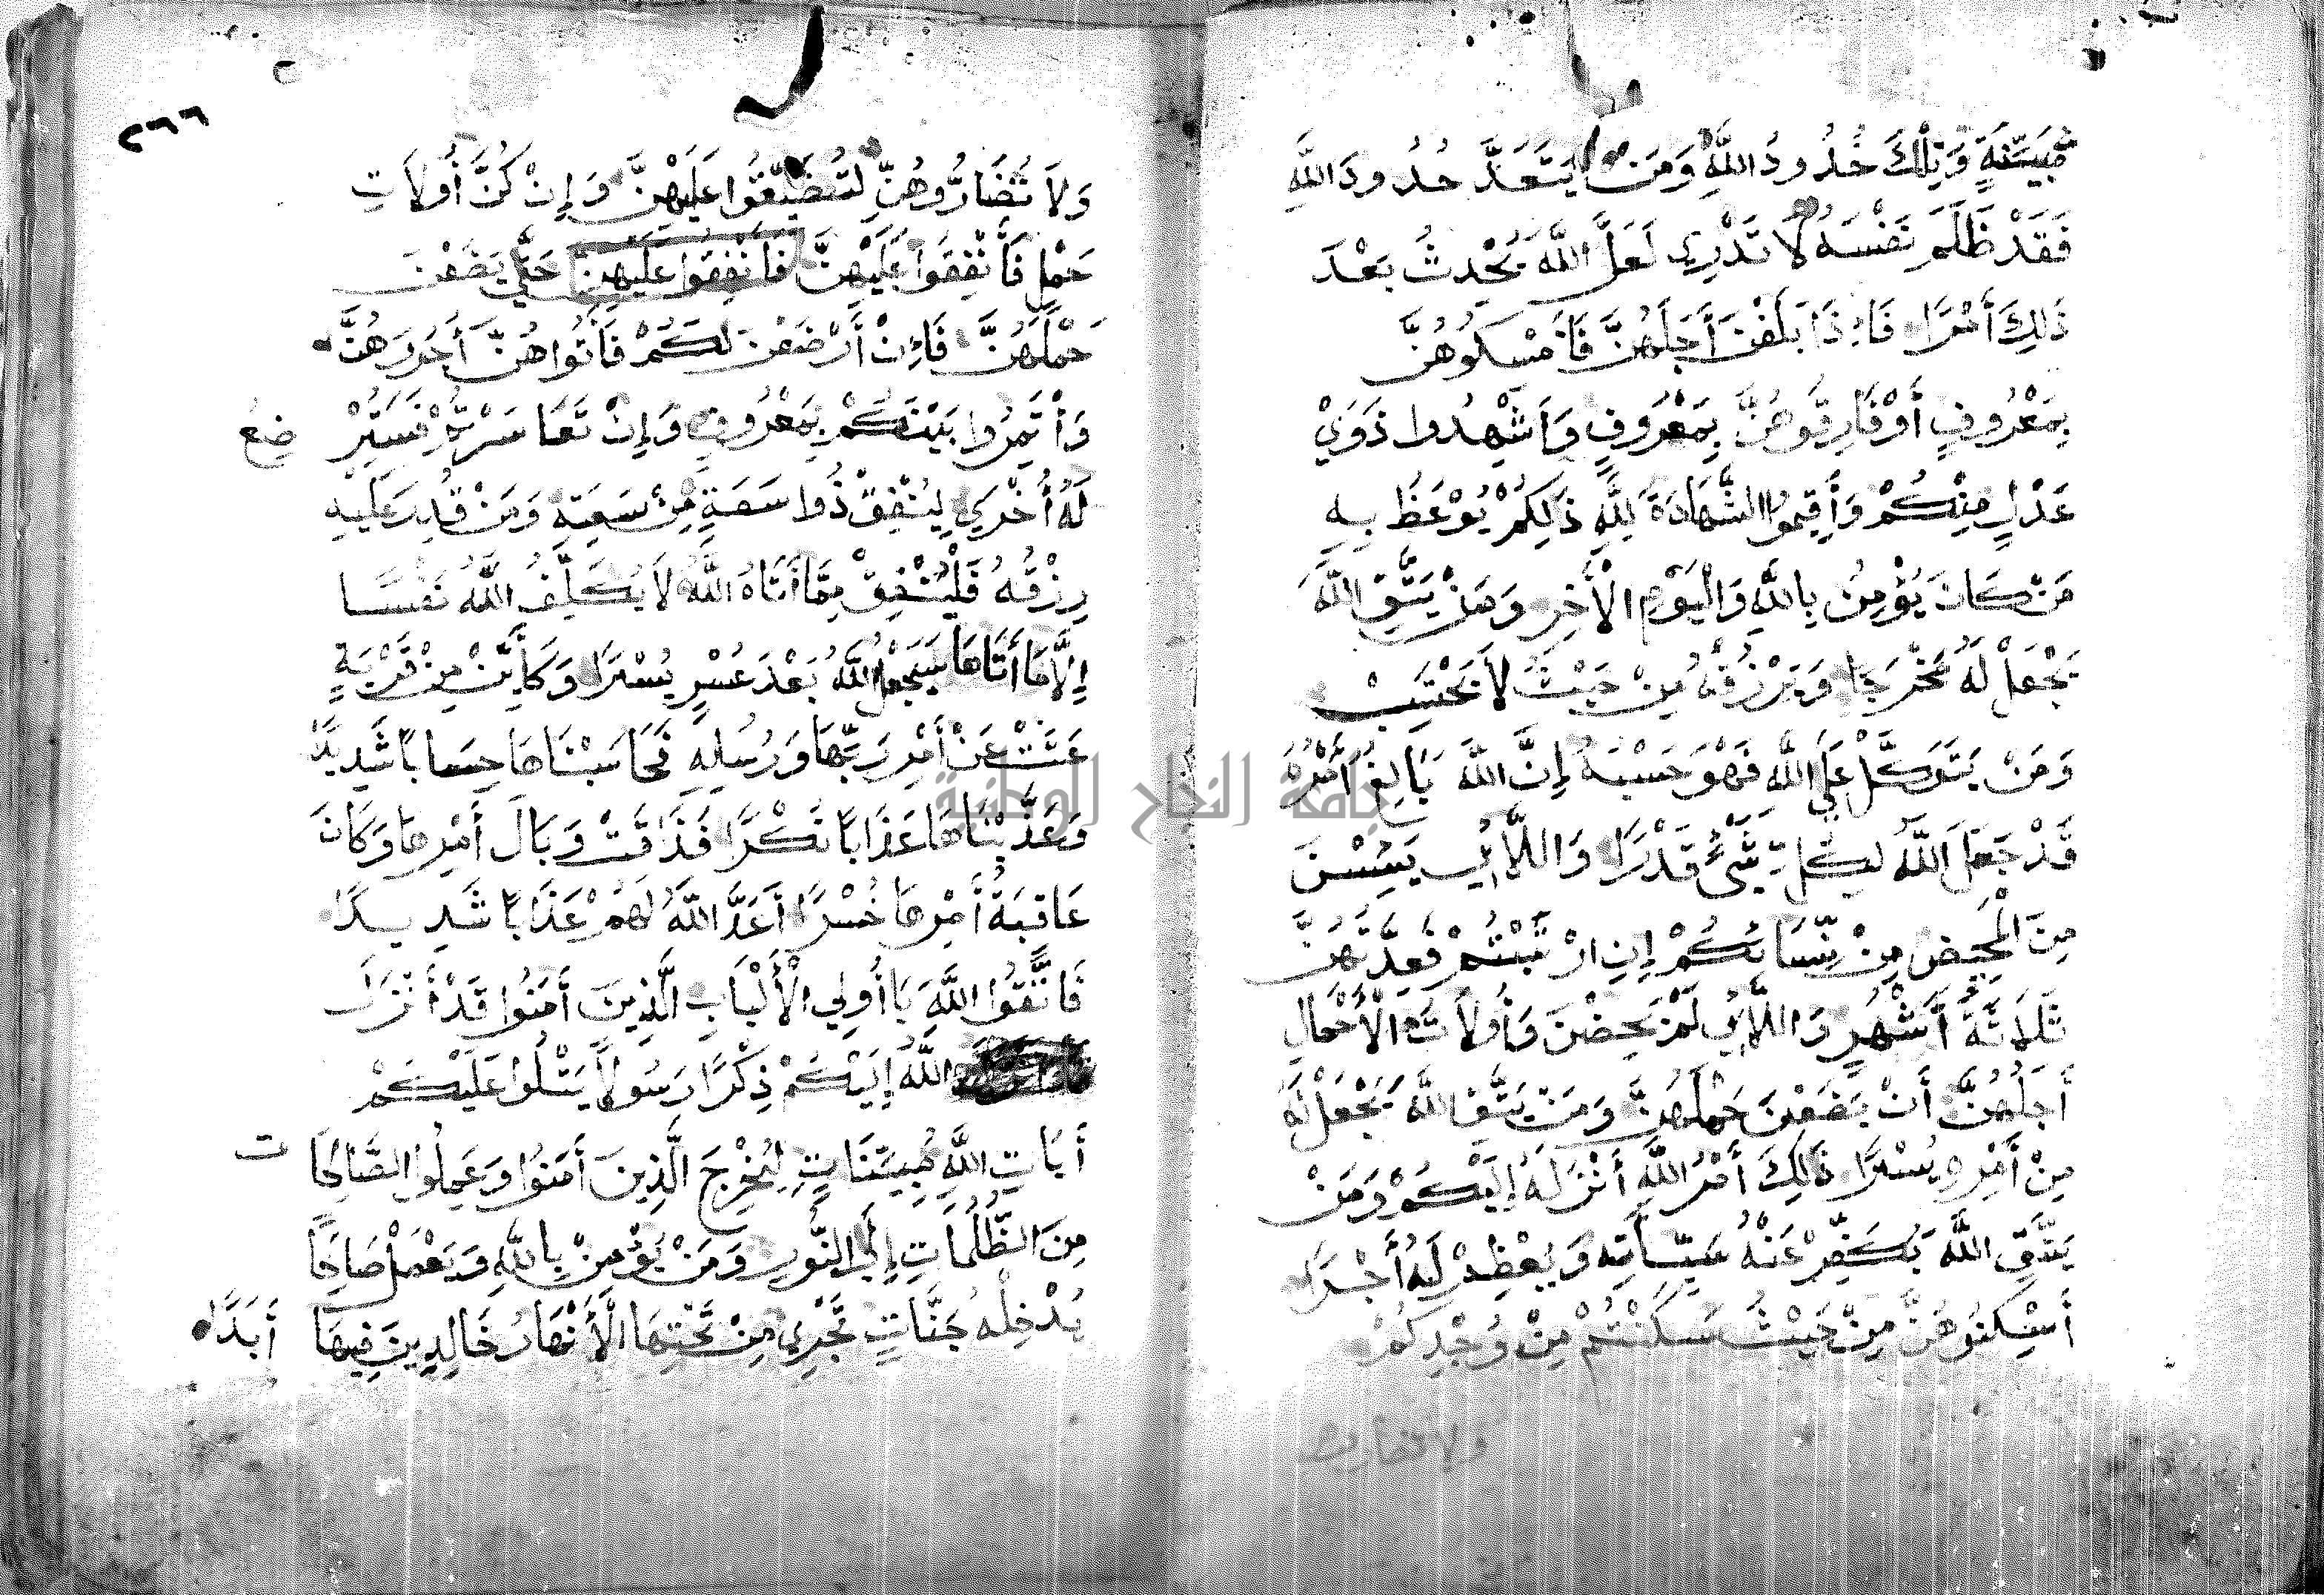 مُبَيِّنَةٍ وَتِلْكَ حُدُودُ اللَّهِ وَمَنْ يَتَعَدَّ حُدُودَ اللَّهِ
فَقَدْ ظَلَمَ نَفْسَهُ لَا تَدْرِي لَعَلَّ اللَّهَ يُحْدِثُ بَعْدَ
ذَلِكَ أَمْرًا فَإِذَا بَلَغْنَ أَجَلَهُنَّ فَأَمْسِكُوهُنَّ
بِمَعْرُوفٍ أَوْ فَارِقُوهُنَّ بِمَعْرُوفٍ وَأَشْهِدُوا ذَوَيْ
عَدْلٍ مِنْكُمْ وَأَقِيمُوا الشَّهَادَةَ لِلَّهِ ذَلِكُمْ يُوعَظُ بِهِ
مَنْ كَانَ يُؤْمِنُ بِاللَّهِ وَالْيَوْمِ الْأَخِرِ وَمَنْ يَتَّقِ اللَّهَ
يَجْعَلْ لَهُ مَخْرَجًا وَيَرْزُقْهُ مِنْ حَيْثُ لَا يَحْتَسِبْ
وَمَنْ يَتَوَكَّلْ عَلَى اللَّهِ فَهْوَ حَسْبُهُ إِنَّ اللَّهَ بَالِغُ أَمْرِهِ
قَدْ جَعَلَ اللَّهُ لِكُلِّ شَيْءٍ قَدْرًا وَاللَّائِي يَئِسْنَ
مِنَ الْمَحِيضِ مِنْ نِسَائِكُمْ إِنِ ارْتَبْتُمْ فَعِدَّتُهُنَّ
ثَلَاثَةُ أَشْهُرٍ وَاللَّائِي لَمْ يَحِضْنَ وَأُولَاتُ الْأَحْمَالِ
أَجَلُهُنَّ أَنْ يَضَعْنَ حَمْلَهُنَّ وَمَنْ يَتَّقِ اللَّهَ يَجْعَلْ لَهُ
مِنْ أَمْرِهِ يُسْرًا ذَلِكَ أَمْرُ اللَّهِ أَنْزَلَهُ إِلَيْكُمْ وَمَنْ
يَتَّقِ اللَّهَ يُكَفِّرْ عَنْهُ سَيِّـَٔاتِهِ وَيُعْظِمْ لَهُ أَجْرًا
أَسْكِنُوهُنَّ مِنْ حَيْثُ سَكَنْتُمْ مِنْ وُجْدِكُمْ
ولا تضاروهن
٢٦٦
وَلَا تُضَارُّوهُنَّ لِتُضَيِّقُوا عَلَيْهِنَّ وَإِنْ كُنَّ أُولَاتِ
حَمْلٍ فَأَنْفِقُوا عَلَيْهِنَّ فَأَنْفِقُوا عَلَيْهِنَّ حَتَّى يَضَعْنَ
حَمْلَهُنَّ فَإِنْ أَرْضَعْنَ لَكُمْ فَأَتُوهُنَّ أُجُورَهُنَّ
وَأْتَمِرُوا بَيْنَكُمْ بِمَعْرُوفٍ وَإِنْ تَعَاسَرْتُمْ فَسَتُرْ ضِعُ
لَهُ أُخْرَى لِيُنْفِقْ ذُوا سَعَةٍ مِنْ سَعَتِهِ وَمَنْ قُدِرَ عَلَيْهِ
رِزْقُهُ فَلْيُنْفِقْ مِمَّا أَتَاهُ اللَّهُ لَا يُكَلِّفُ اللَّهُ نَفْسًا
إِلَّا مَا أَتَاهَا سَيَجْعَلُ اللَّهُ بَعْدَ عُسْرٍ يُسْرًا وَكَأَيِّنْ مِنْ قَرْيَةٍ
عَتَتْ عَنْ أَمْرِ رَبِّهَا وَرُسُلِهِ فَحَاسَبْنَاهَا حِسَابًا شَدِيدًا
وَعَذَّبْنَاهَا عَذَابًا نُكْرًا فَذَاقَتْ وَبَالَ أَمْرِهَا وَكَانَ
عَاقِبَةُ أَمْرِهَا خُسْرًا أَعَدَّ اللَّهُ لَهُمْ عَذَابًا شَدِيدًا
فَاتَّقُوا اللَّهَ يَا أُولِي الْأَلْبَابِ الَّذِينَ أَمَنُوا قَدْ أَنْزَلَ
اللَّهُ إِلَيْكُمْ ذِكْرًا رَسُولًا يَتْلُوا عَلَيْكُمْ
أَيَاتِ اللَّهِ مُبَيِّنَاتٍ لِيُخْرِجَ الَّذِينَ أَمَنُوا وَعَمِلُوا الصَّالِحَا ت
مِنَ الظُّلُمَاتِ إِلَى النُّورِ وَمَنْ يُؤْمِنْ بِاللَّهِ وَيَعْمَلْ صَالِحًا
يُدْخِلْهُ جَنَّاتٍ تَجْرِي مِنْ تَحْتِهَا الْأَنْهَارُ خَالِدِينَ فِيهَا أَبَدًا
جامعة النجاح الوطنية